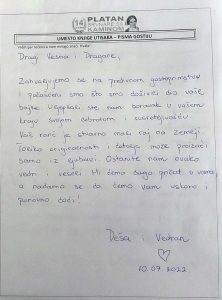 PLATAN
BRVNARE SA
KAMINOM
UMESTO KNJIGE UTISAKA - PISMA GOSTIJU
Dragi Vesna i Dragane,
Zahvaljujemo se na predivnom gostoprimstvu
i počašćeni smo što smo doživeli dio vaše
bajke. Uljepšali ste nam boravak u vašem
kraju svojom dobrotom i susretljivošću
Vaš ranč je stvarno mali raj na zemlji.
Toliko originalnosti i detalja može proizaći
samo iz ljubavi. Ostanite nam ovako
vedri i veseli. Mi ćemo dugo pričati o vama
a nadamo se da ćemo vam uskoro i
ponovno doći!
Deša i Vedran
10.07.2022